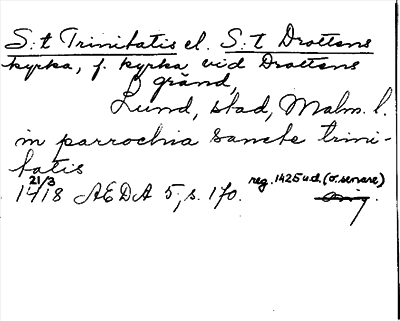 S:t Trinitatis el. S:t Drottens
kyrka, f. kyrka vid Drottens
gränd,
Lund, stad, Malm. l.
in parrochia sancte trini-
tatis
21/3
1418 AEDA 5, s. 170. reg. 1425 u.d. (o. senare)